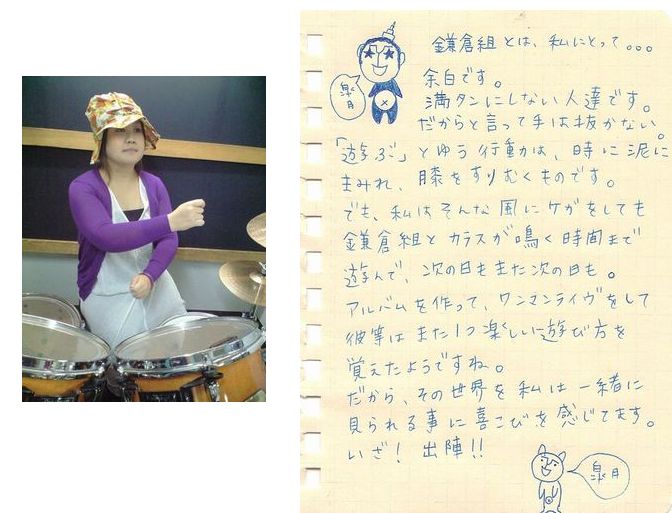 鎌倉組とは、私にとって。。。
余白です。
満タンにしない人達です。
だからと言って手は抜かない。
「遊ぶ」とゆう行動は、時に泥に
まみれ、膝をすりむくものです。
でも、私はそんな風にケガをしても
鎌倉組とカラスが鳴く時間まで
遊んで、次の日もまた次の日も。
アルバムを作って、ワンマンライヴをして
彼等はまた1つ楽しい遊び方を
覚えたようですね。
だから、その世界を私は一緒に
見られる事に喜こびを感じてます。
いざ！出陣!!